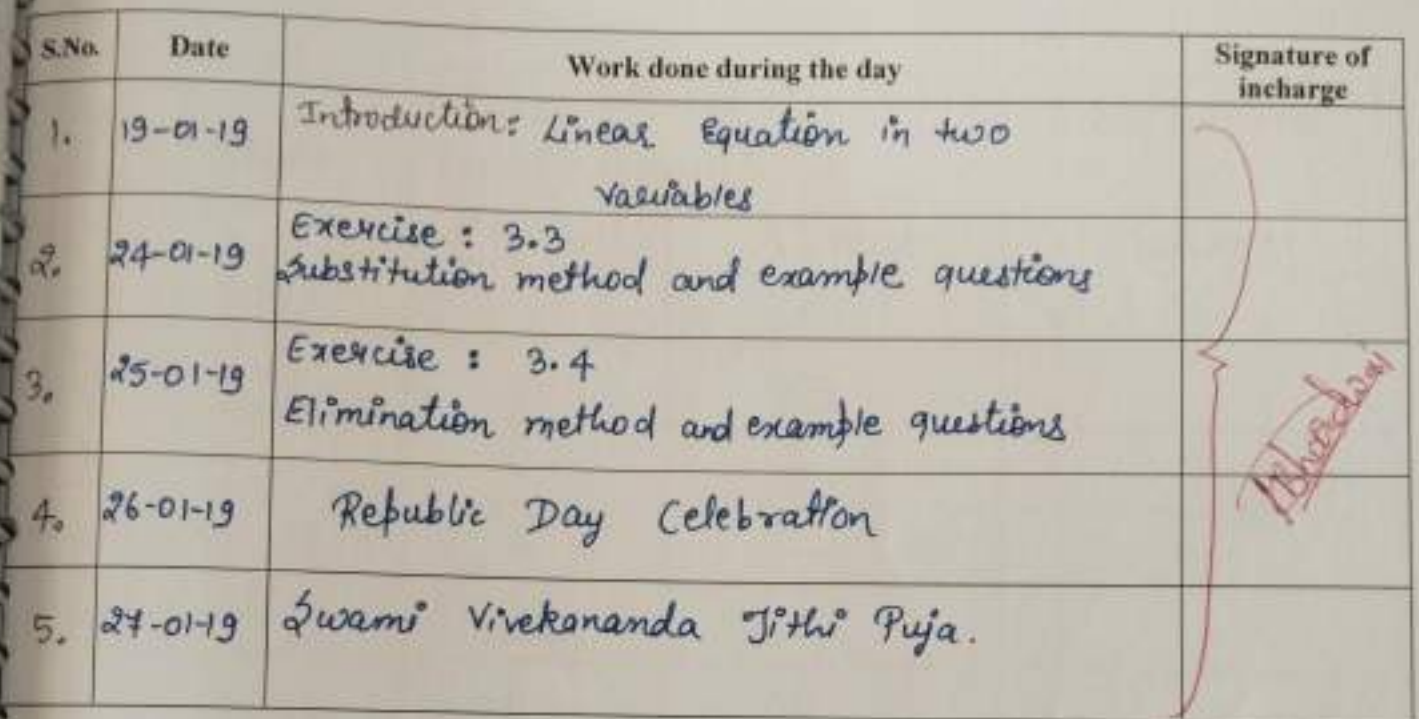 S.No. Date Work done during the day Signature of incharge
1. 19-01-19 Introduction: Linear Equation in two
variables
2. 24-01-19 Exercise : 3.3
Substitution method and example questions
3. 25-01-19 Exercise : 3.4
Elimination method and example questions
4. 26-01-19 Republic Day Celebration
5. 27-01-19 Swami Vivekananda Tithi Puja.